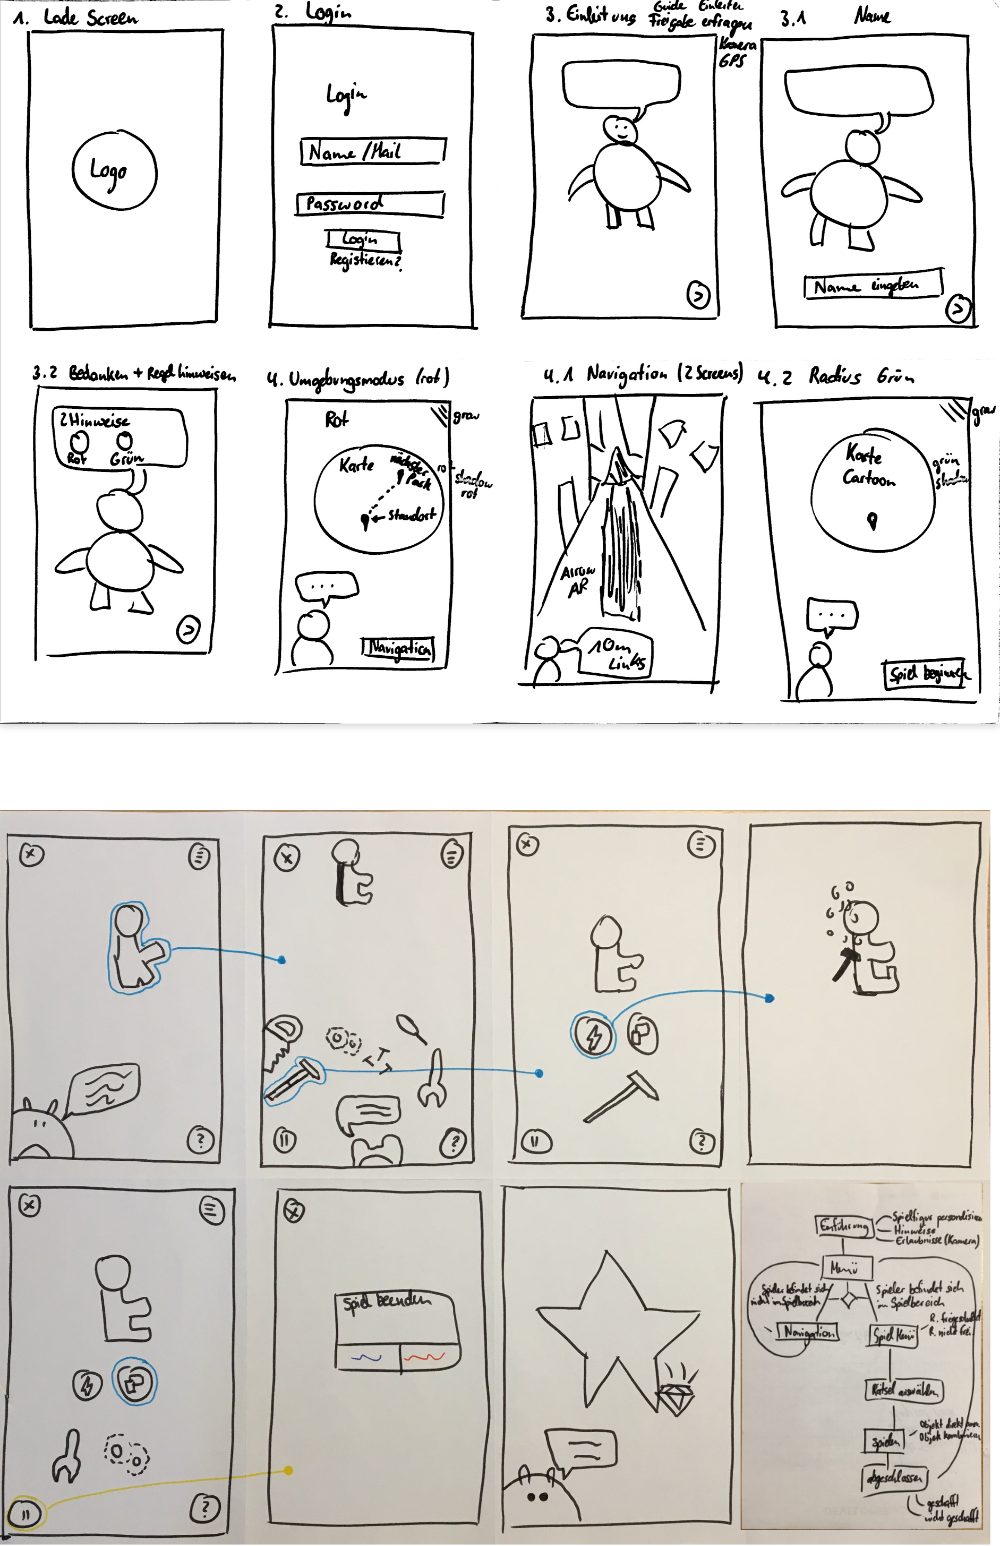 1. Lade Screen
Logo
2. Login
Login
Name /Mail
Password
Login
Registrieren?
3. Einleitung
Guide Einleiten
Freigabe erfragen
Kamera
GPS
3.1 Name
Name eingeben
3.2 Bedanken + Regelhinweisen
2 Hinweise
Rot Grün
4. Umgebungsmodus (rot)
Rot
grau
Karte
nächster
Park
rot
shadow
rot
Standort
...
Navigation
4.1 Navigation (2 Screens)
Arrow
AR
10m
Links
4.2 Radius Grün
grau
Karte
Cartoon
grün
shadow
...
Spiel beginnen
?
?
?
?
Spiel beenden
Einführung
Hinweise
Erlaubnisse (Kamera)
Menü
Spieler befindet sich
nicht im Spielbereich
Spieler befindet sich
im Spielbereich
Navigation
Spiel Menü
R. freigeschaltet
R. nicht frei.
Rätsel auswählen
Spielen
Objekt kombinieren
abgeschlossen
geschafft
nicht geschafft